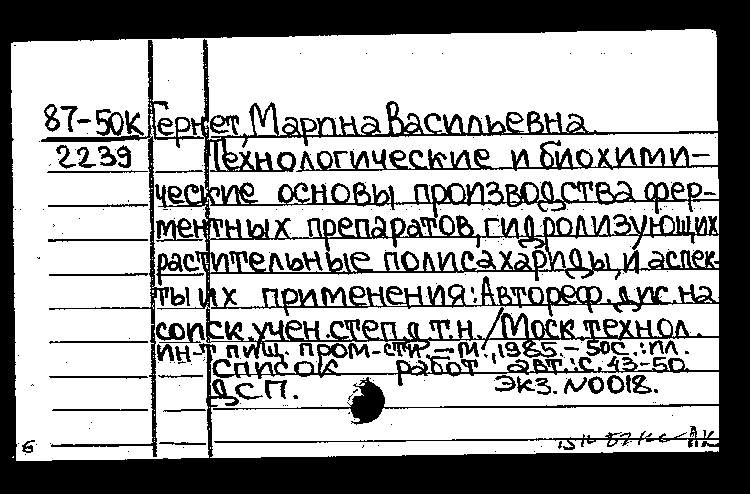 87-50К Гернет, Марина Васильевна.
2239 Технологические и биохими-
ческие основы производства фер-
ментных препаратов, гидролизующих
растительные полисахариды, и аспек-
ты их применения: Автореф. дис. на
соиск. учен. степ. д. т. н. / Моск. технол.
ин-т пищ. пром-сти. - М., 1985. - 50с. : ил.
Список работ авт.: с. 43-50.
ДСП. Экз. N0018.
6